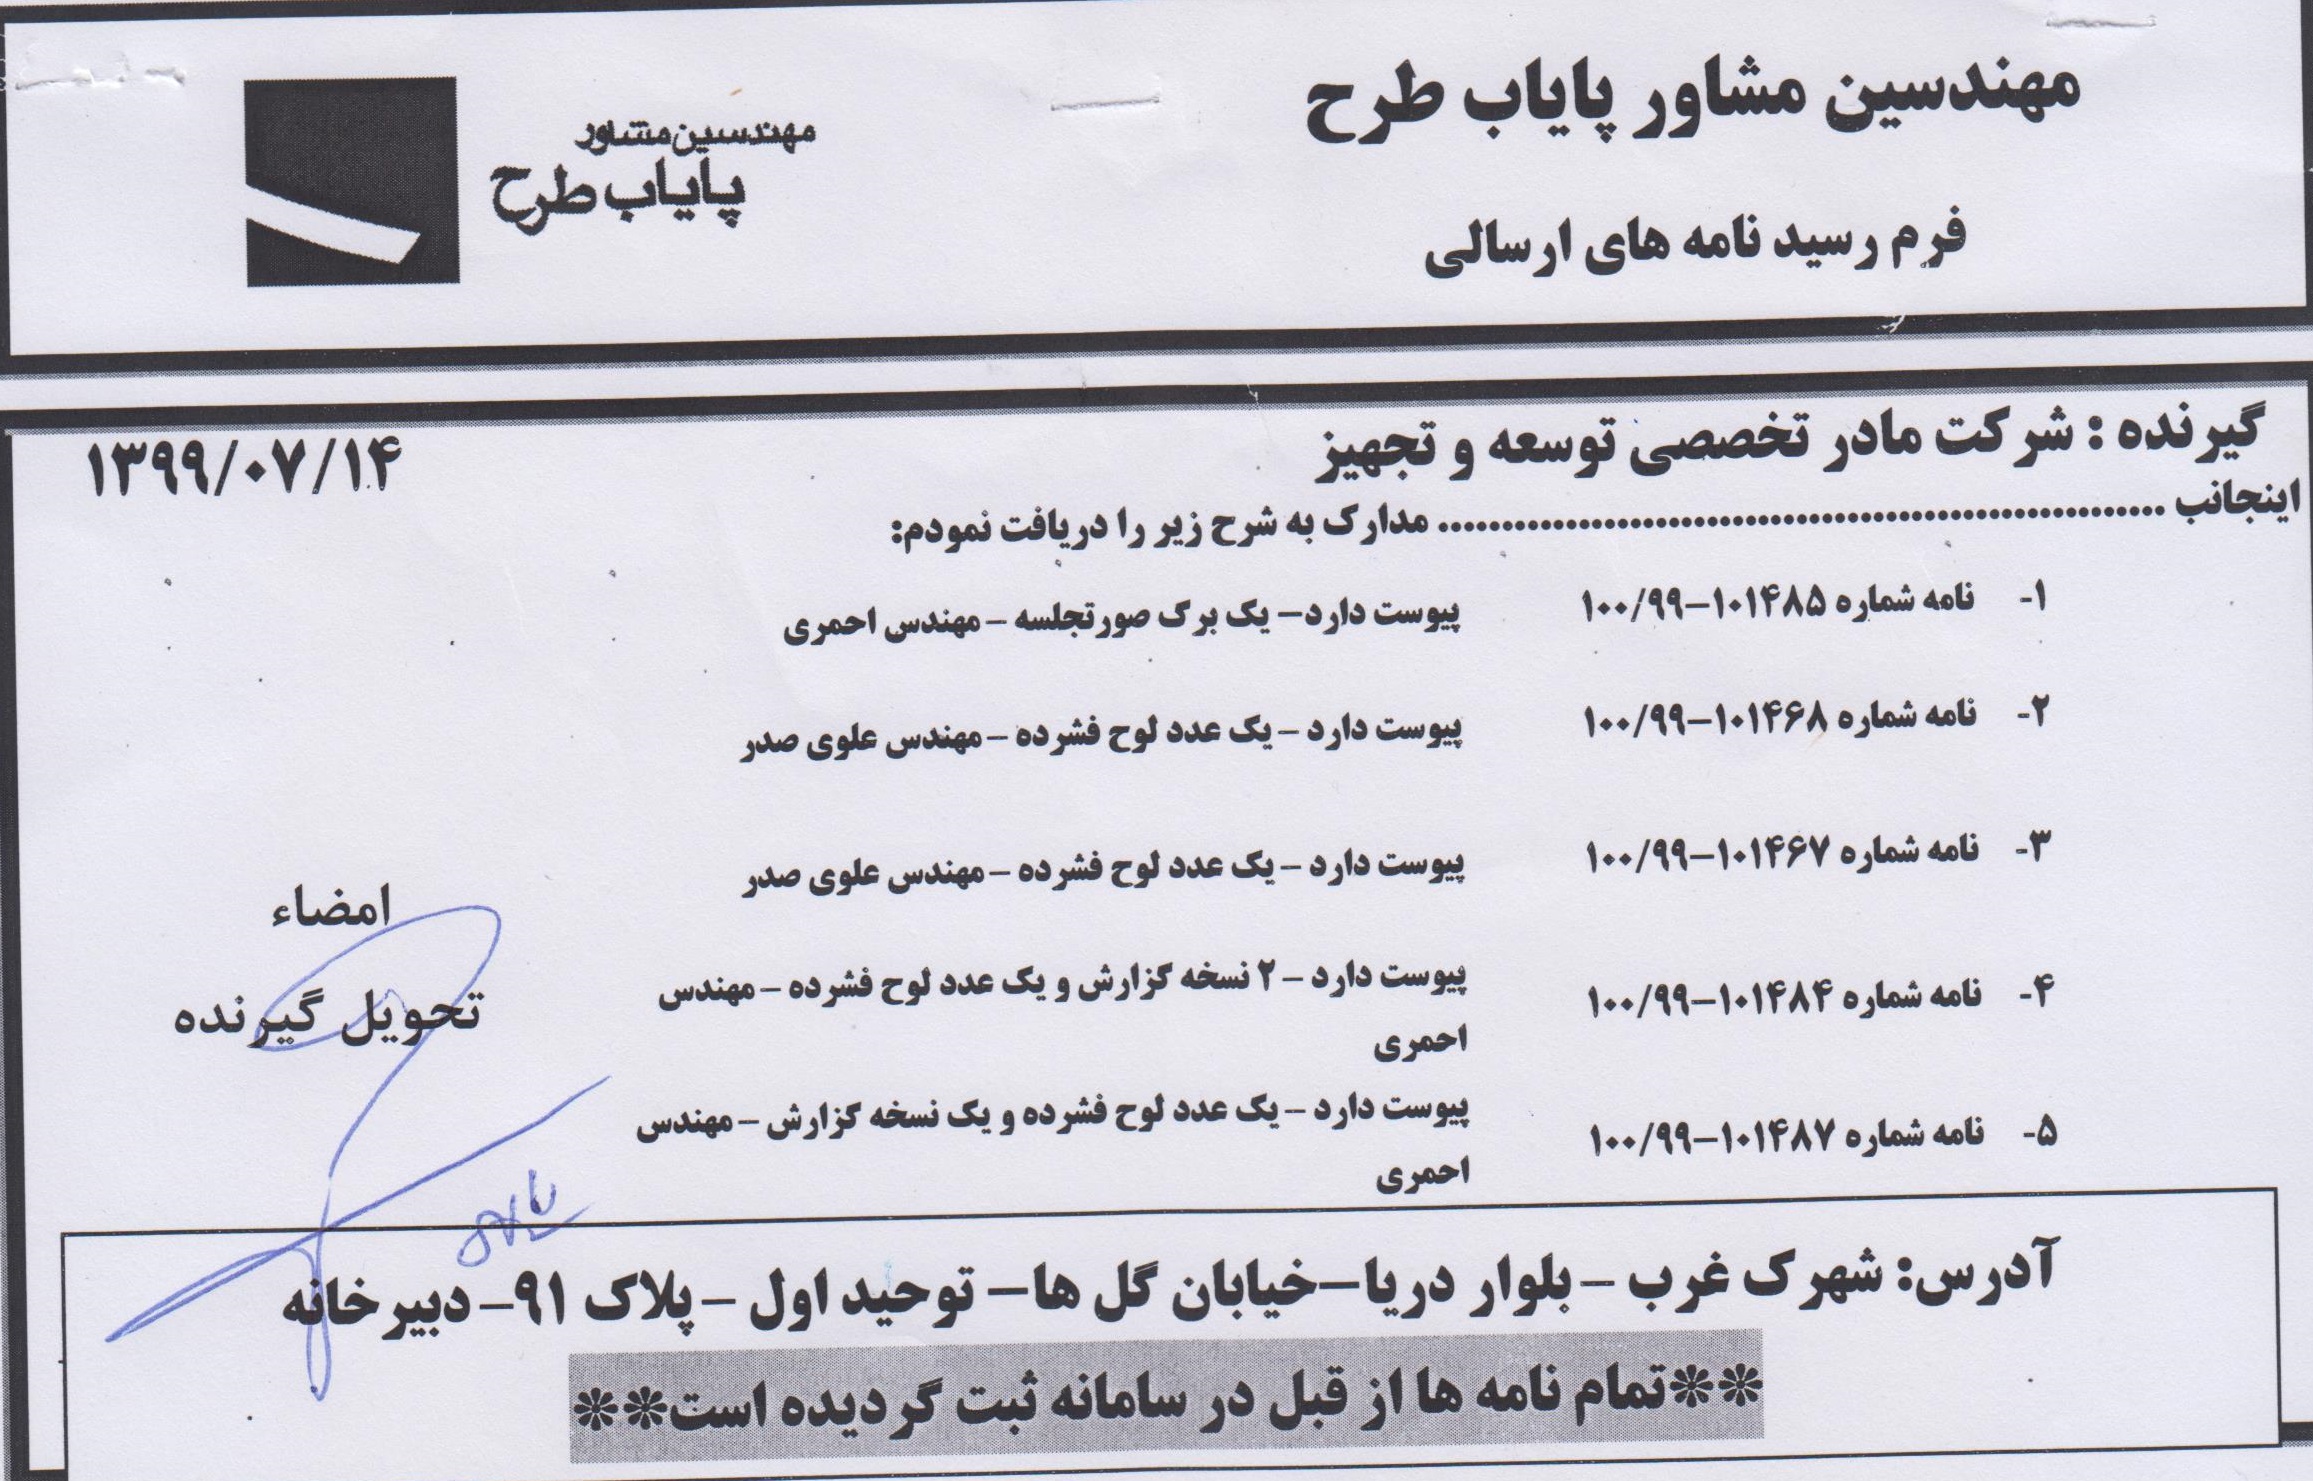 مهندسین مشاور پایاب طرح
مهندسین مشاور
پایاب طرح
فرم رسید نامه های ارسالی
گیرنده : شرکت مادر تخصصی توسعه و تجهیز
۱۳۹۹/۰۷/۱۴
اینجانب ........................................................ مدارک به شرح زیر را دریافت نمودم:
۱- نامه شماره ۱۰۱۴۸۵-۱۰۰/۹۹ پیوست دارد- یک برگ صورتجلسه - مهندس احمری
۲- نامه شماره ۱۰۱۴۶۸-۱۰۰/۹۹ پیوست دارد - یک عدد لوح فشرده - مهندس علوی صدر
۳- نامه شماره ۱۰۱۴۶۷-۱۰۰/۹۹ پیوست دارد - یک عدد لوح فشرده - مهندس علوی صدر
امضاء
۴- نامه شماره ۱۰۱۴۸۴-۱۰۰/۹۹ پیوست دارد - ۲ نسخه گزارش و یک عدد لوح فشرده - مهندس
احمری
تحویل گیرنده
۵- نامه شماره ۱۰۱۴۸۷-۱۰۰/۹۹ پیوست دارد - یک عدد لوح فشرده و یک نسخه گزارش - مهندس
احمری
آدرس: شهرک غرب - بلوار دریا-خیابان گل ها- توحید اول - پلاک ۹۱- دبیرخانه
**تمام نامه ها از قبل در سامانه ثبت گردیده است**